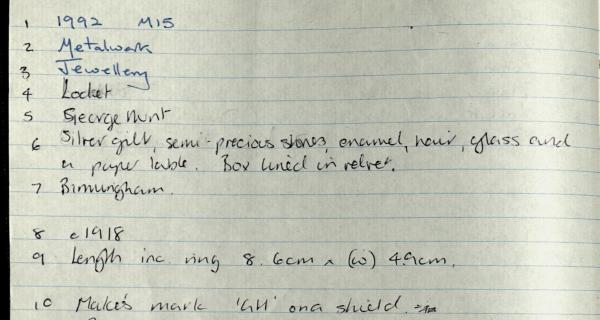 1 1992 M15
2 Metalwork
3 Jewellery
4 Locket
5 George Hunt
6 Silver gilt, semi-precious stones, enamel, hair, glass and
a paper lable. Box lined in velvet.
7 Birmingham.
8 c1918
9 Length inc. ring 8.6cm x (w) 4.9cm.
10 Makers mark 'GH' on a shield.